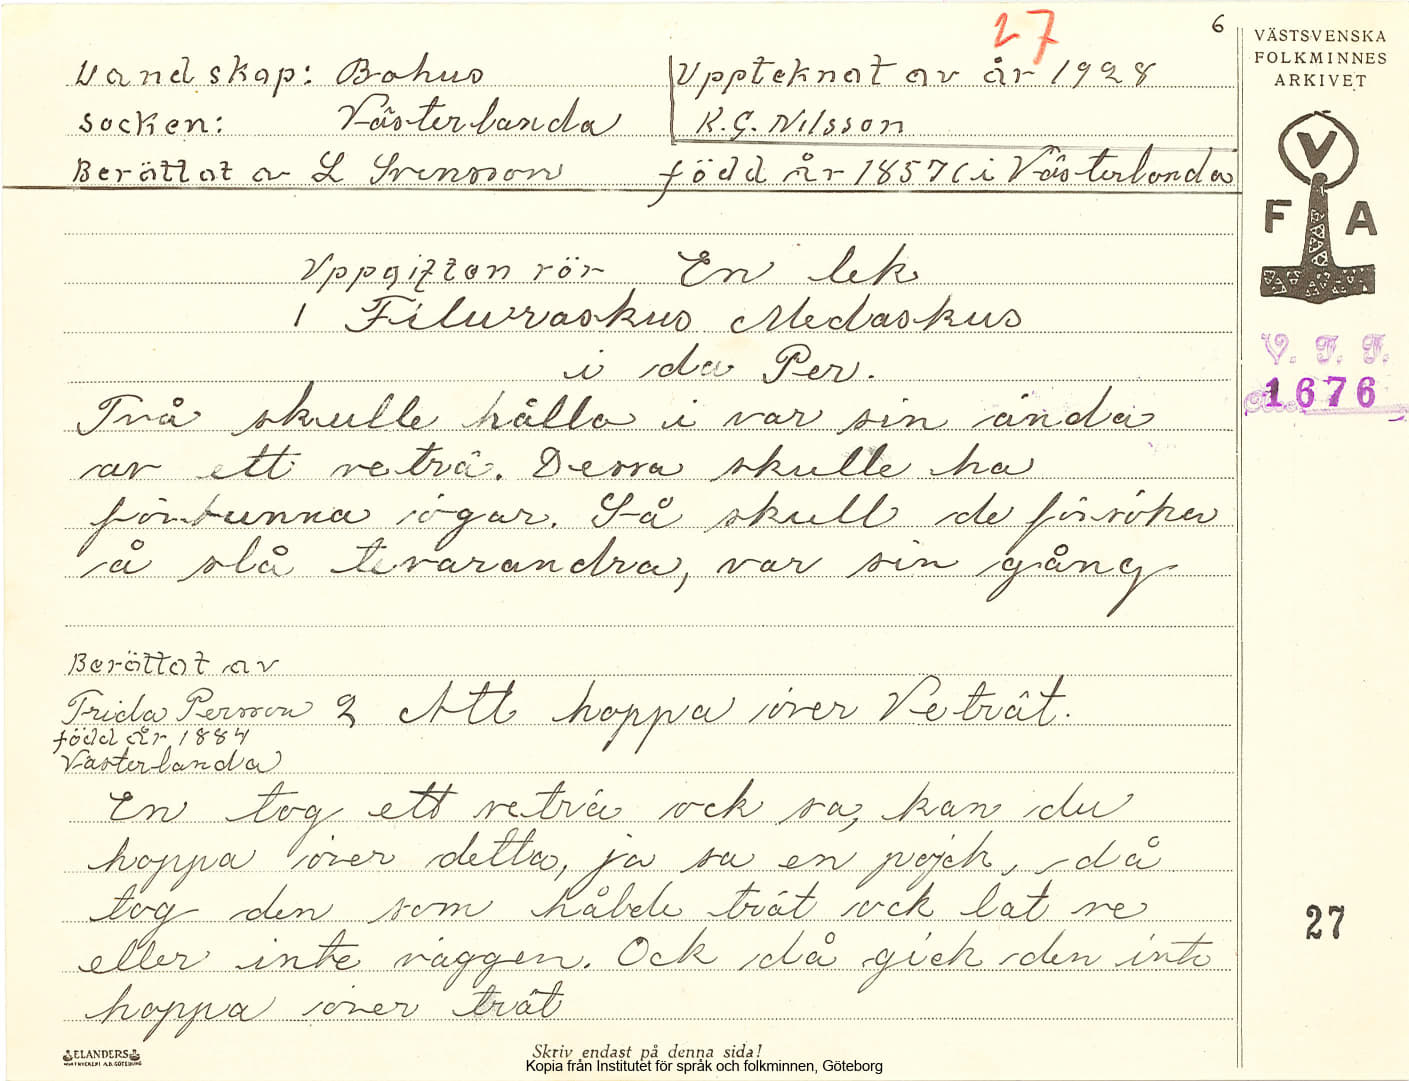 27
6
VÄSTSVENSKA
FOLKMINNES
ARKIVET
Landskap: Bohus
Uppteknat av år 1928
Socken: Västerlanda
K. G. Nilsson
Berättat av L Svensson född år 1857 i Västerlanda
V
F A
Uppgiften rör En lek
1 Filuraskus Medaskus
i da Per.
V. F. F.
1676
Två skulle hålla i var sin ända
av ett veträ. Dessa skulle ha
förbunna ögar. Så skull de försöka
å slå tevarandra, var sin gång
Berättat av
Frida Persson 2 Att hoppa över Veträt.
född år 1884
Västerlanda
En tog ett veträ ock sa, kan du
hoppa över detta, ja sa en pojck, då
tog den som hålde trät ock lat ve
eller inte väggen. Ock då gick den inte
hoppa över trät
27
ELANDERS
Skriv endast på denna sida!
Kopia från Institutet för språk och folkminnen, Göteborg